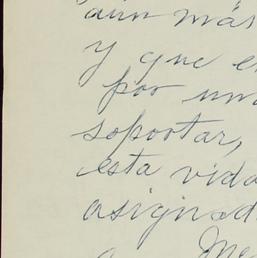 aún más
y que e
por un
soportar,
esta vida
asignad
Me